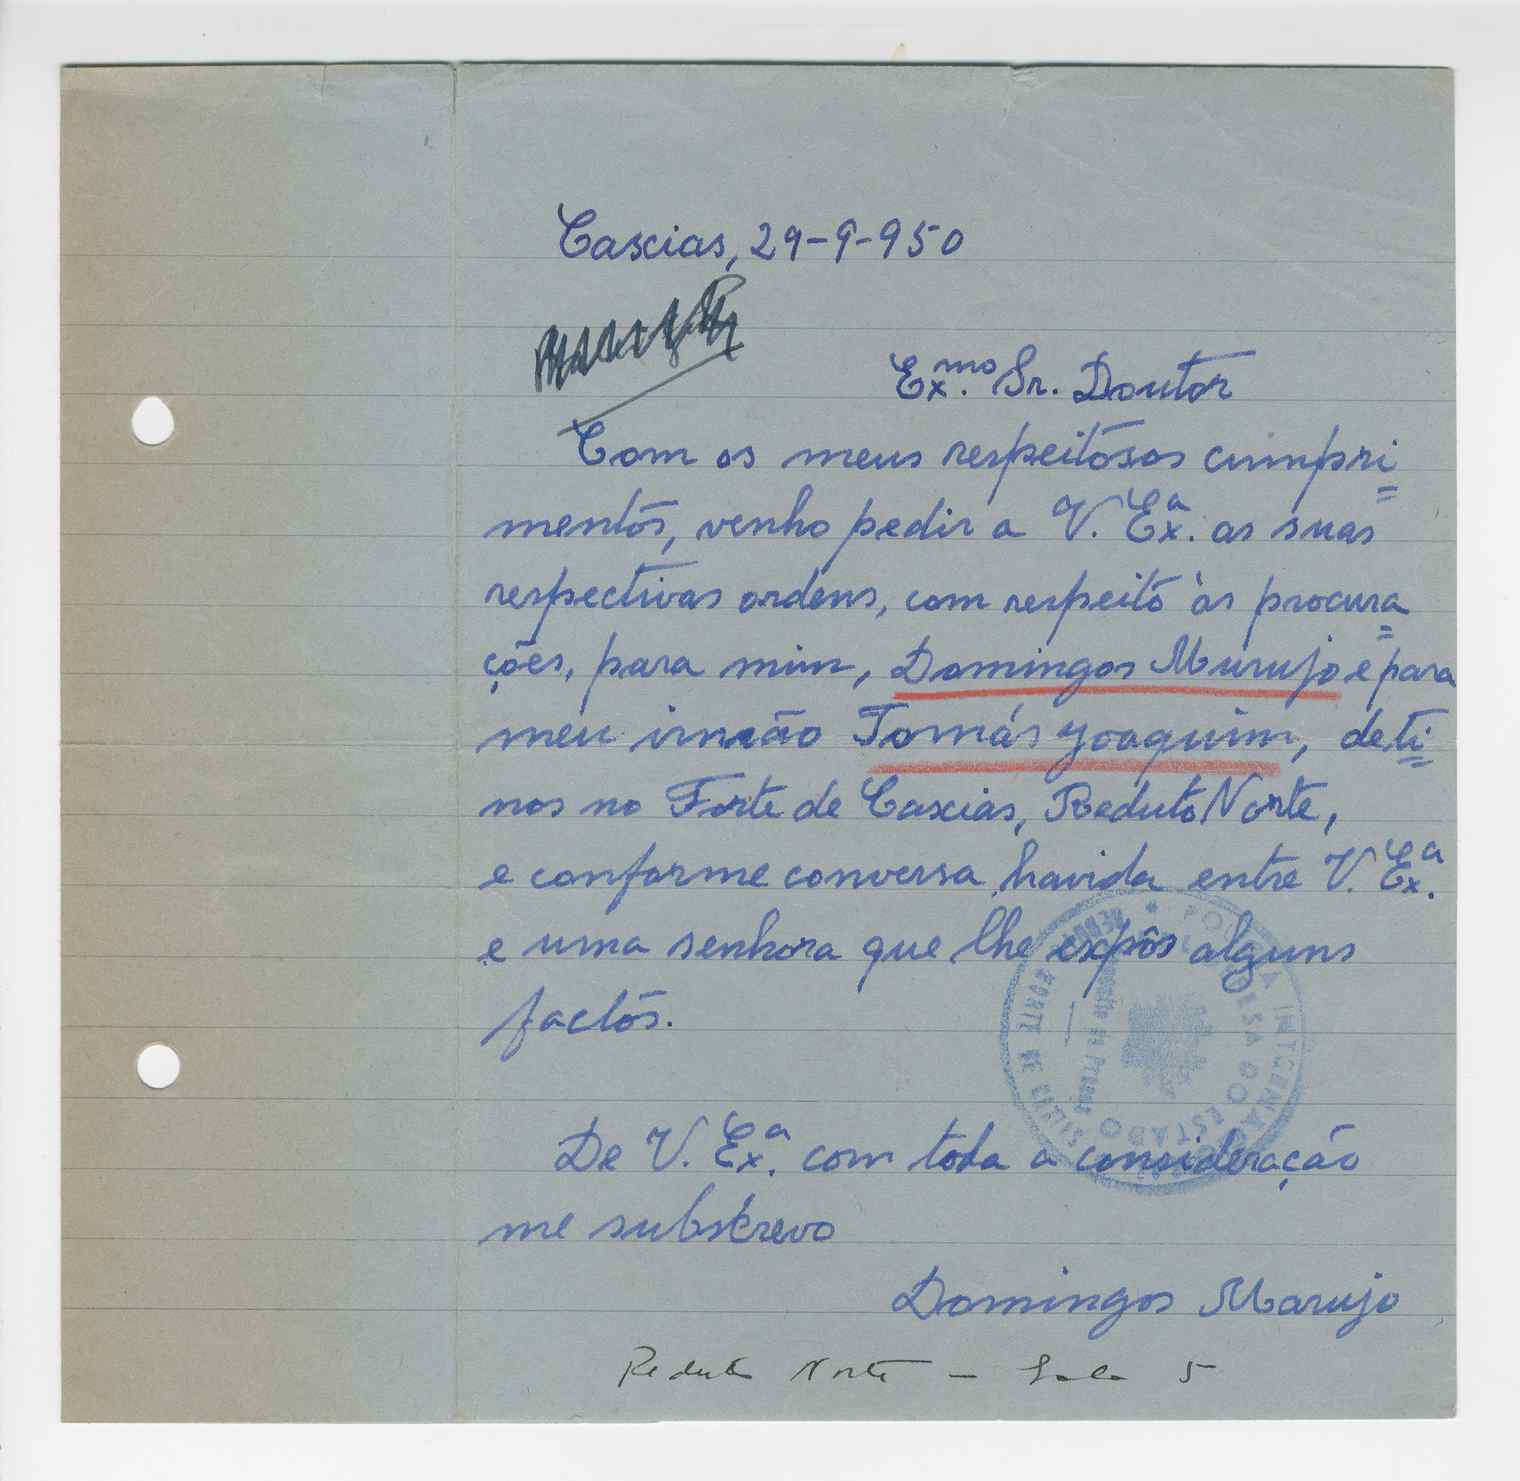 Caxias, 29-9-950
Ex.mo Sr. Doutor
Com os meus respeitosos cumpri=
mentos, venho pedir a V. Ex.a as suas
respectivas ordens, com respeito às procura=
ções, para mim, Domingos Marujo e para
meu irmão Tomás Joaquim, deti=
nos no Forte de Caxias, Reduto Norte,
e conforme conversa havida entre V. Ex.a
e uma senhora que lhe expôs alguns
factos.
POLICIA INTERNACIONAL
DEFESA DO ESTADO
Deposito de Presos
FORTE DE CAXIAS
De V. Ex.a com toda a consideração
me subscrevo
Domingos Marujo
Reduto Norte - Sala 5